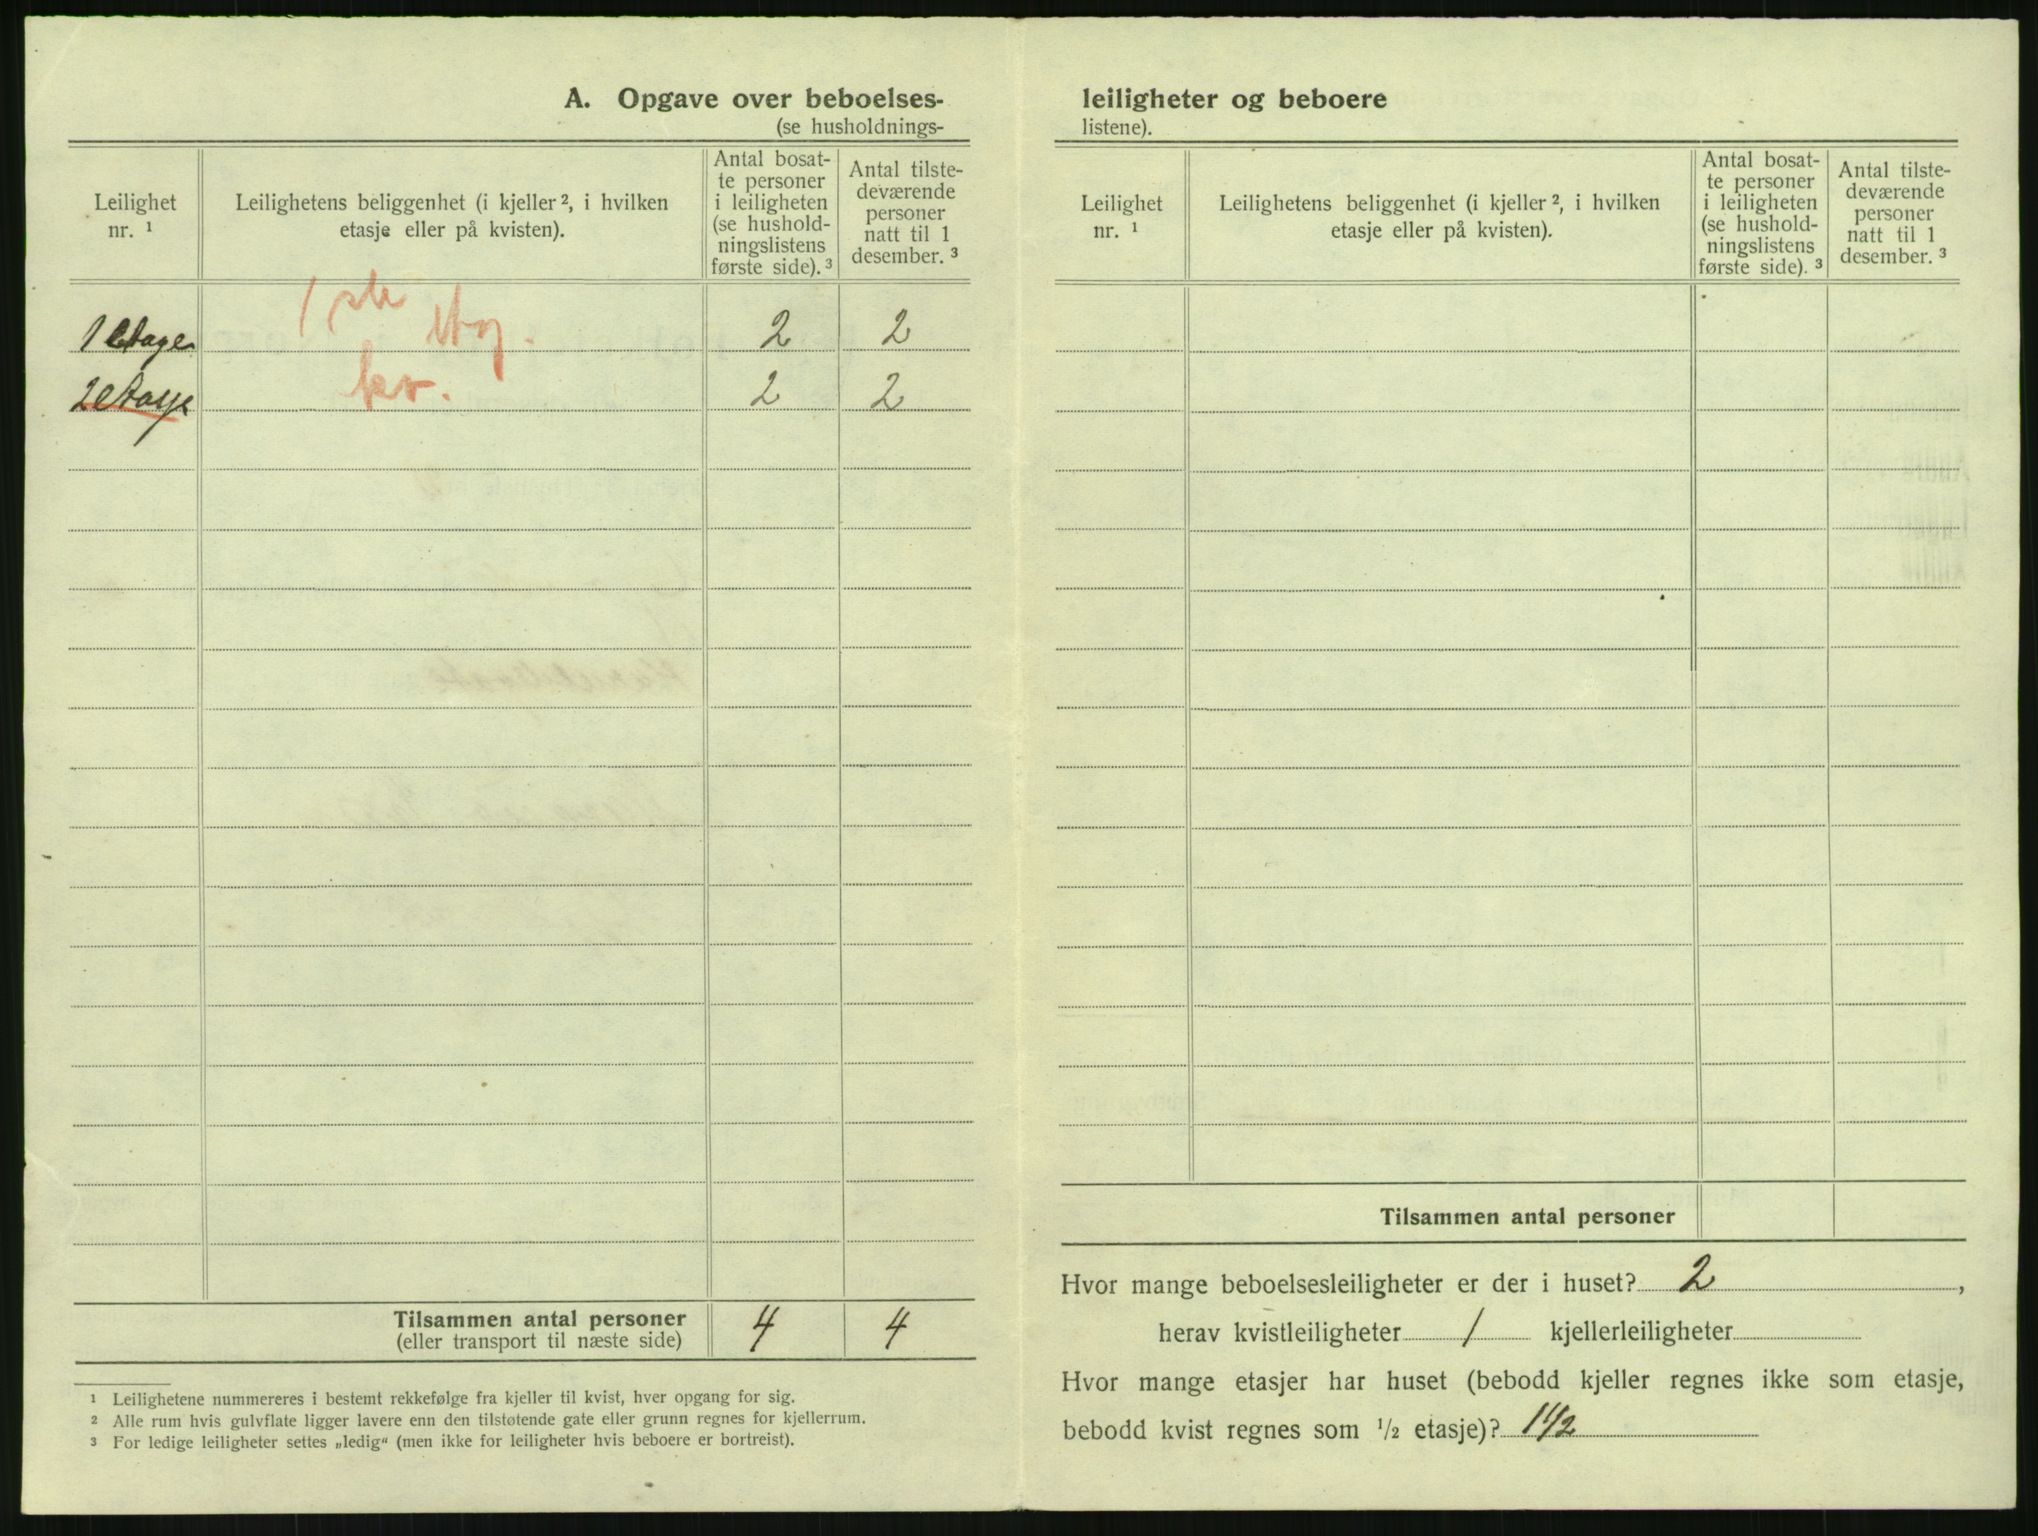 A. Opgave over beboelses-
(se husholdnings-
Leilighet
nr. ¹
Leilighetens beliggenhet (i kjeller ², i hvilken
etasje eller på kvisten).
Antal bosat-
te personer
i leiligheten
(se hushold-
ningslistens
første side). ³
Antal tilste-
deværende
personer
natt til 1
desember. ³
1 etage 1ste etg. 2 2
2 etasje kv. 2 2
Tilsammen antal personer 4 4
(eller transport til næste side)
¹ Leilighetene nummereres i bestemt rekkefølge fra kjeller til kvist, hver opgang for sig.
² Alle rum hvis gulvflate ligger lavere enn den tilstøtende gate eller grunn regnes for kjellerrum.
³ For ledige leiligheter settes „ledig“ (men ikke for leiligheter hvis beboere er bortreist).
leiligheter og beboere
listene).
Leilighet
nr. ¹
Leilighetens beliggenhet (i kjeller ², i hvilken
etasje eller på kvisten).
Antal bosat-
te personer
i leiligheten
(se hushold-
ningslistens
første side). ³
Antal tilste-
deværende
personer
natt til 1
desember. ³
Tilsammen antal personer
Hvor mange beboelsesleiligheter er der i huset? 2 ,
herav kvistleiligheter 1 kjellerleiligheter
Hvor mange etasjer har huset (bebodd kjeller regnes ikke som etasje,
bebodd kvist regnes som ½ etasje)? 1½